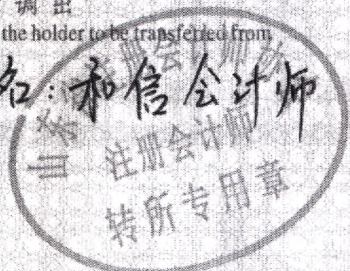 调出
the holder to be transferred from
名：和信会计师
山东省注册会计师协
注册会计师
转所专用章